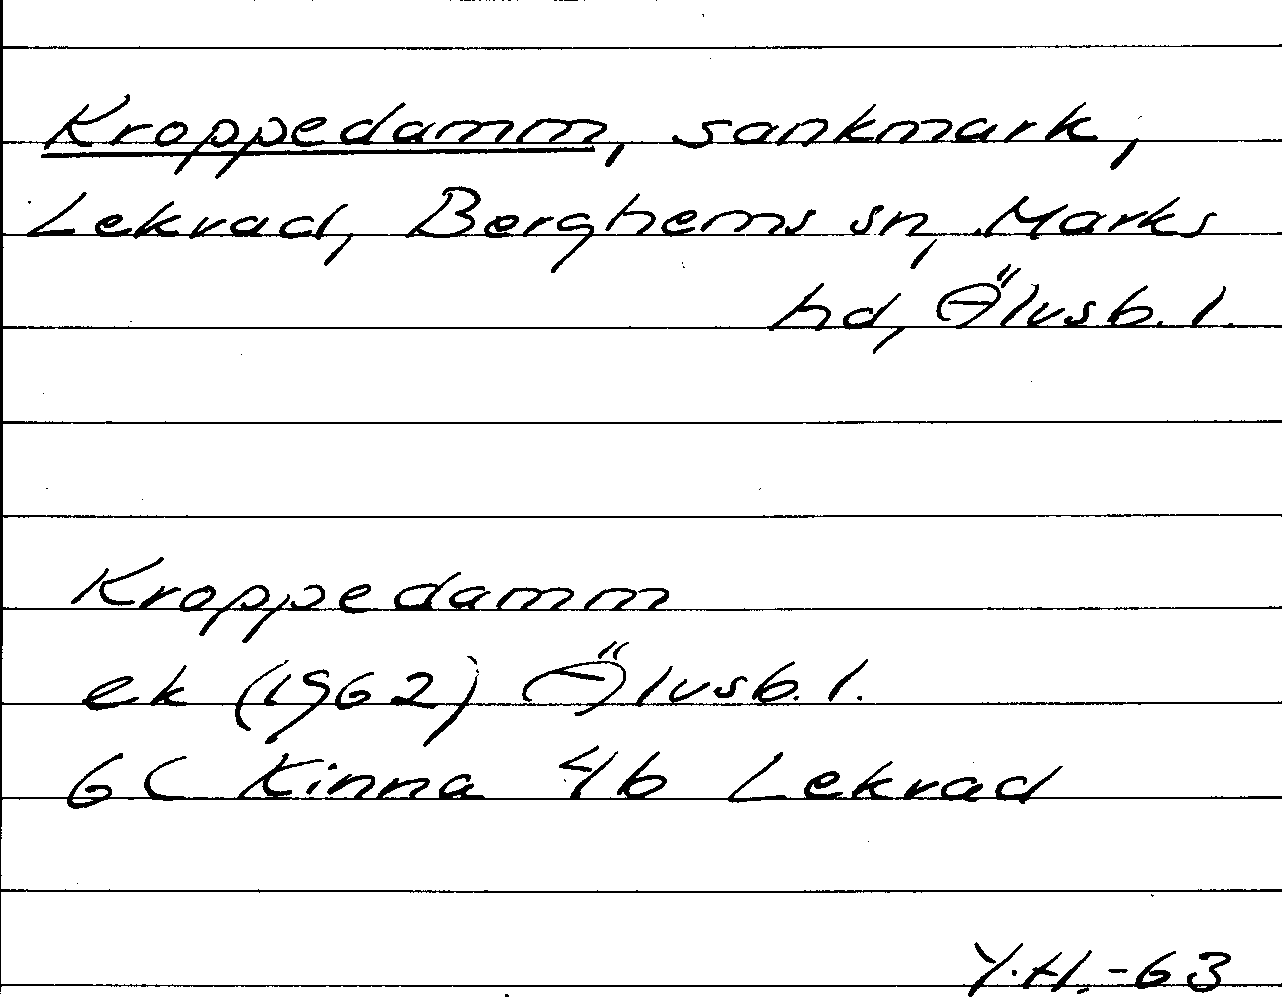 Kroppedamm, sankmark,
Lekvad, Berghems sn, Marks
hd, Älvsb. l.
Kroppedamm
ek (1962) Älvsb. l.
6C Kinna 4b Lekvad
Y.H.-63